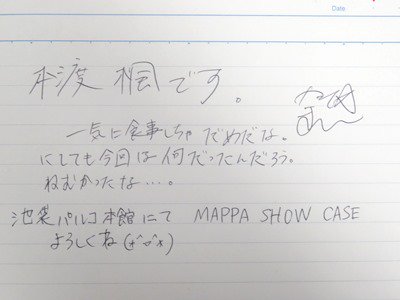 Date
本渡 楓です。
一気に食事しちゃ だめだな。
にしても今回は何だったんだろう。
ねむかったな…。
池袋パルコ本館にて MAPPA SHOW CASE
よろしくね(*^o^*)